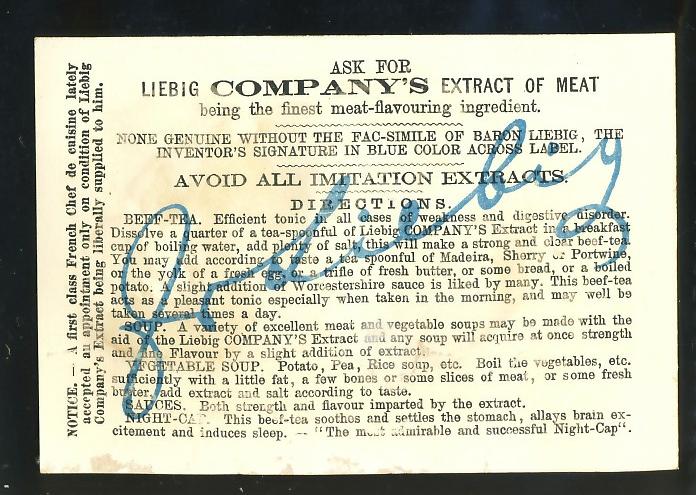 ASK FOR
LIEBIG COMPANY'S EXTRACT OF MEAT
being the finest meat-flavouring ingredient.
NONE GENUINE WITHOUT THE FAC-SIMILE OF BARON LIEBIG, THE
INVENTOR'S SIGNATURE IN BLUE COLOR ACROSS LABEL.
AVOID ALL IMITATION EXTRACTS.
DIRECTIONS.
BEEF-TEA. Efficient tonic in all cases of weakness and digestive disorder.
Dissolve a quarter of a tea-spoonful of Liebig COMPANY'S Extract in a breakfast
cup of boiling water, add plenty of salt, this will make a strong and clear beef-tea.
You may add according to taste a tea-spoonful of Madeira, Sherry or Portwine,
on the yolk of a fresh egg, or a trifle of fresh butter, or some bread, or a boiled
potato. A slight addition of Worcestershire sauce is liked by many. This beef-tea
acts as a pleasant tonic especially when taken in the morning, and may well be
taken several times a day.
SOUP. A variety of excellent meat and vegetable soups may be made with the
aid of the Liebig COMPANY'S Extract and any soup will acquire at once strength
and fine Flavour by a slight addition of extract.
VEGETABLE SOUP. Potato, Pea, Rice soup, etc. Boil the vegetables, etc.
sufficiently with a little fat, a few bones or some slices of meat, or some fresh
butter, add extract and salt according to taste.
SAUCES. Both strength and flavour imparted by the extract.
NIGHT-CAP. This beef-tea soothos and settles the stomach, allays brain ex-
citement and induces sleep. — "The most admirable and successful Night-Cap".
NOTICE. — A first class French Chef de cuisine lately
accepted an appointment only on condition of Liebig
Company's Extract being liberally supplied to him.
J v Liebig